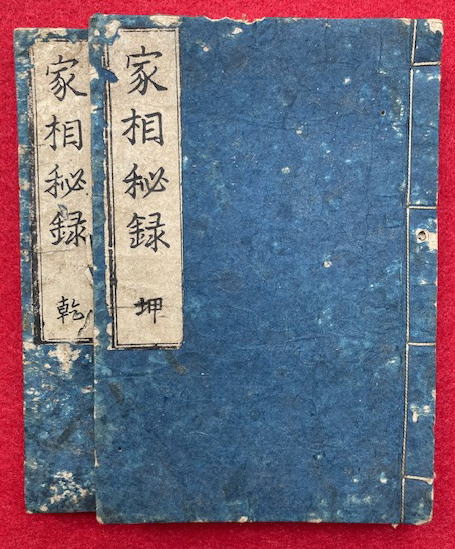 家相秘録 坤
家相秘録 乾